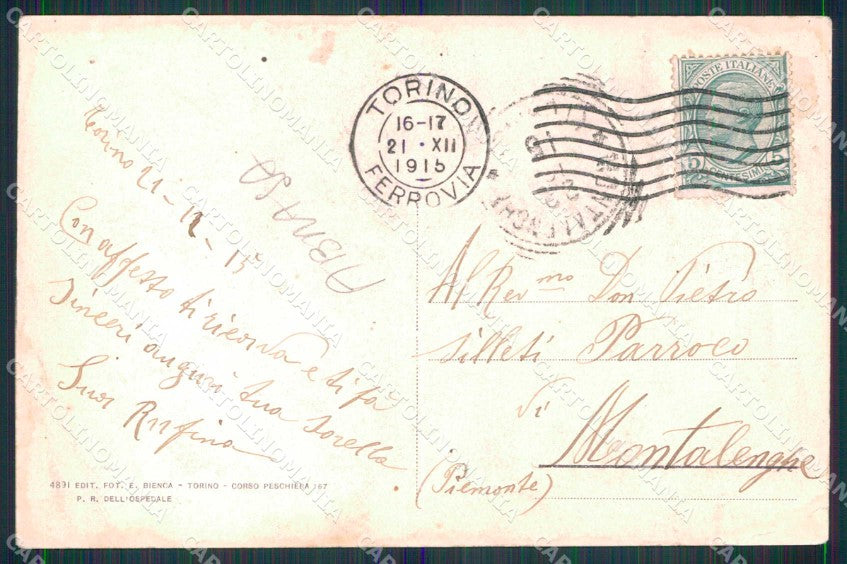 Torino 21-12-15
Con affetto ti ricorda e ti fa
sinceri auguri tua sorella
Suor Rufina
4891 EDIT. FOT. E. BIENCA - TORINO - CORSO PESCHIERA 167
P. R. DELL'OSPEDALE
TORINO
16-17
21 · XII
1915
FERROVIA
MONTALENGHE
POSTE ITALIANE
5 5
CENTESIMI
Al Rev.mo Don Pietro
Silleti Parroco
di
Montalenghe
(Piemonte)
CARTOLINOMANIA